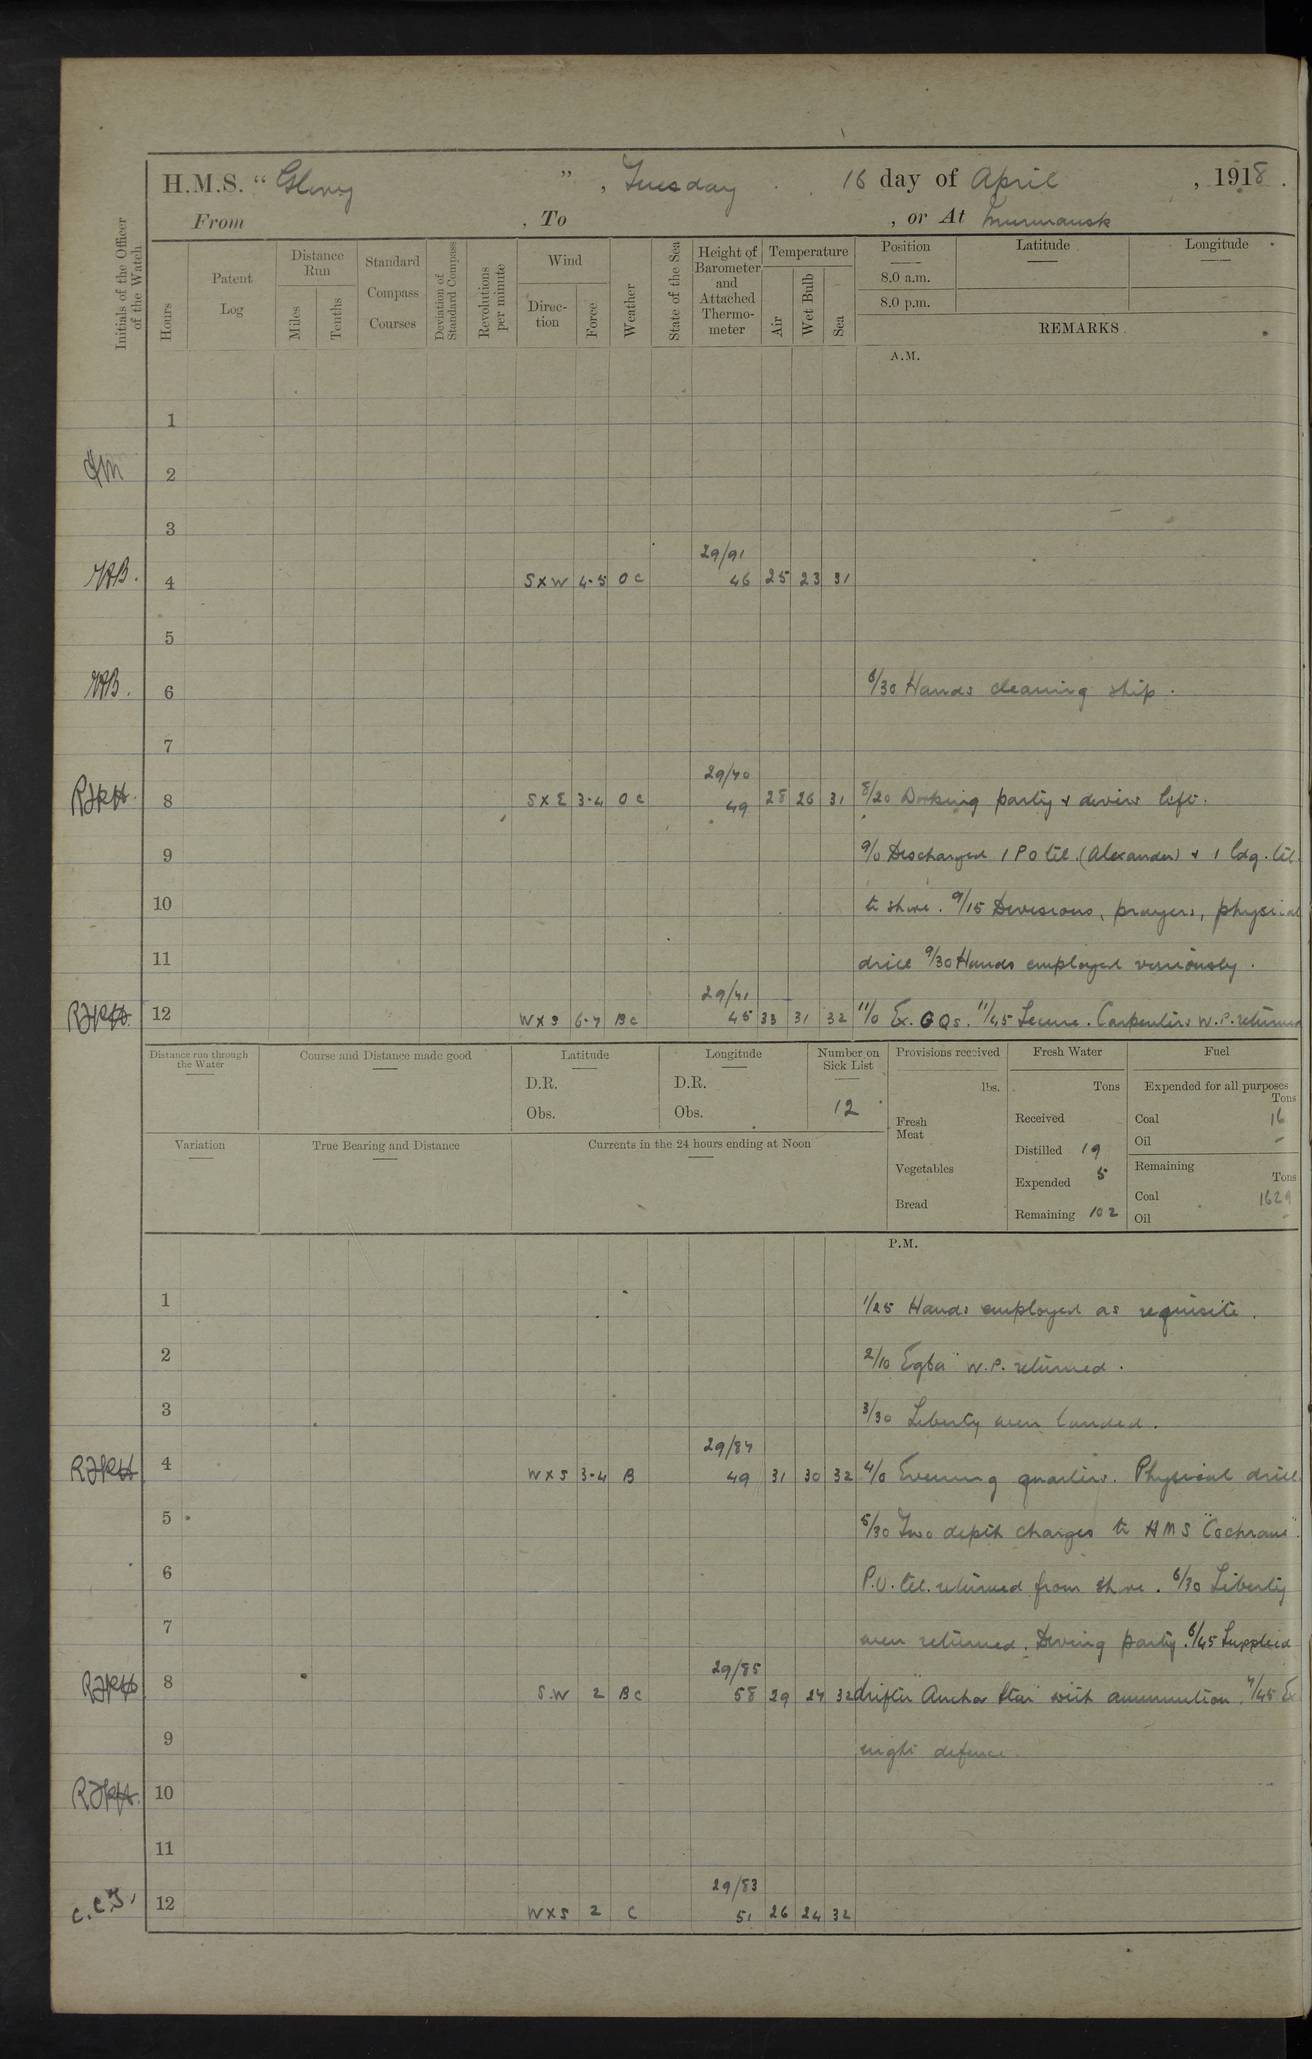 H.M.S. " Glory " , Tuesday 16 day of April , 1918 .
From , To , or At Murmansk
Initials of the Officer of the Watch
Hours
Patent Log
Distance Run
Miles
Tenths
Standard Compass Courses
Deviation of Standard Compass
Revolutions per minute
Wind
Direc- tion
Force
Weather
State of the Sea
Height of Barometer and Attached Thermo- meter
Temperature
Air
Wet Bulb
Sea
Position Latitude Longitude
8.0 a.m.
8.0 p.m.
REMARKS
A.M.
1
2
3
29/91
4 S X W 4-5 O C 46 25 23 31
5
6 6/30 Hands cleaning ship .
7
29/70
RJKH 8 S X E 3-4 O C 49 28 26 31 8/20 Working party & divers left.
9 9/0 Discharged 1 P O tel. (Alexander) & 1 ldg. tel.
10 to shore . 9/15 Divisions, prayers, physical
11 drill 9/30 Hands employed variously .
29/71
RJKH. 12 W X S 6-7 B C 45 33 31 32 11/0 Ex. G Qs. 11/45 Secure. Carpenters W.P. returned
Distance run through the Water
Course and Distance made good
Latitude
D.R.
Obs.
Longitude
D.R.
Obs.
Number on Sick List
12
Provisions received
lbs.
Fresh Meat
Vegetables
Bread
Fresh Water
Tons
Received
Distilled 19
Expended 5
Remaining 102
Fuel
Expended for all purposes
Tons
Coal 16
Oil -
Remaining
Tons
Coal 1629
Oil -
Variation
True Bearing and Distance
Currents in the 24 hours ending at Noon
P.M.
1 1/25 Hands employed as requisite .
2 2/10 "Egba" W.P. returned .
3 3/30 Liberty men landed .
29/84
RJKH 4 W X S 3-4 B 49 31 30 32 4/0 Evening quarters. Physical drill
5 5/30 Two depth charges to H M S "Cochrane".
6 P.O. tel. returned from shore . 6/30 Liberty
7 men returned. Diving party. 6/45 Supplied
29/85
RJKH 8 S.W 2 B C 58 29 27 32 drifter "Anchor Star" with ammunition. 7/45 Ex
9 night defence.
RJKH. 10
11
29/83
12 W X S 2 C 51 26 24 32